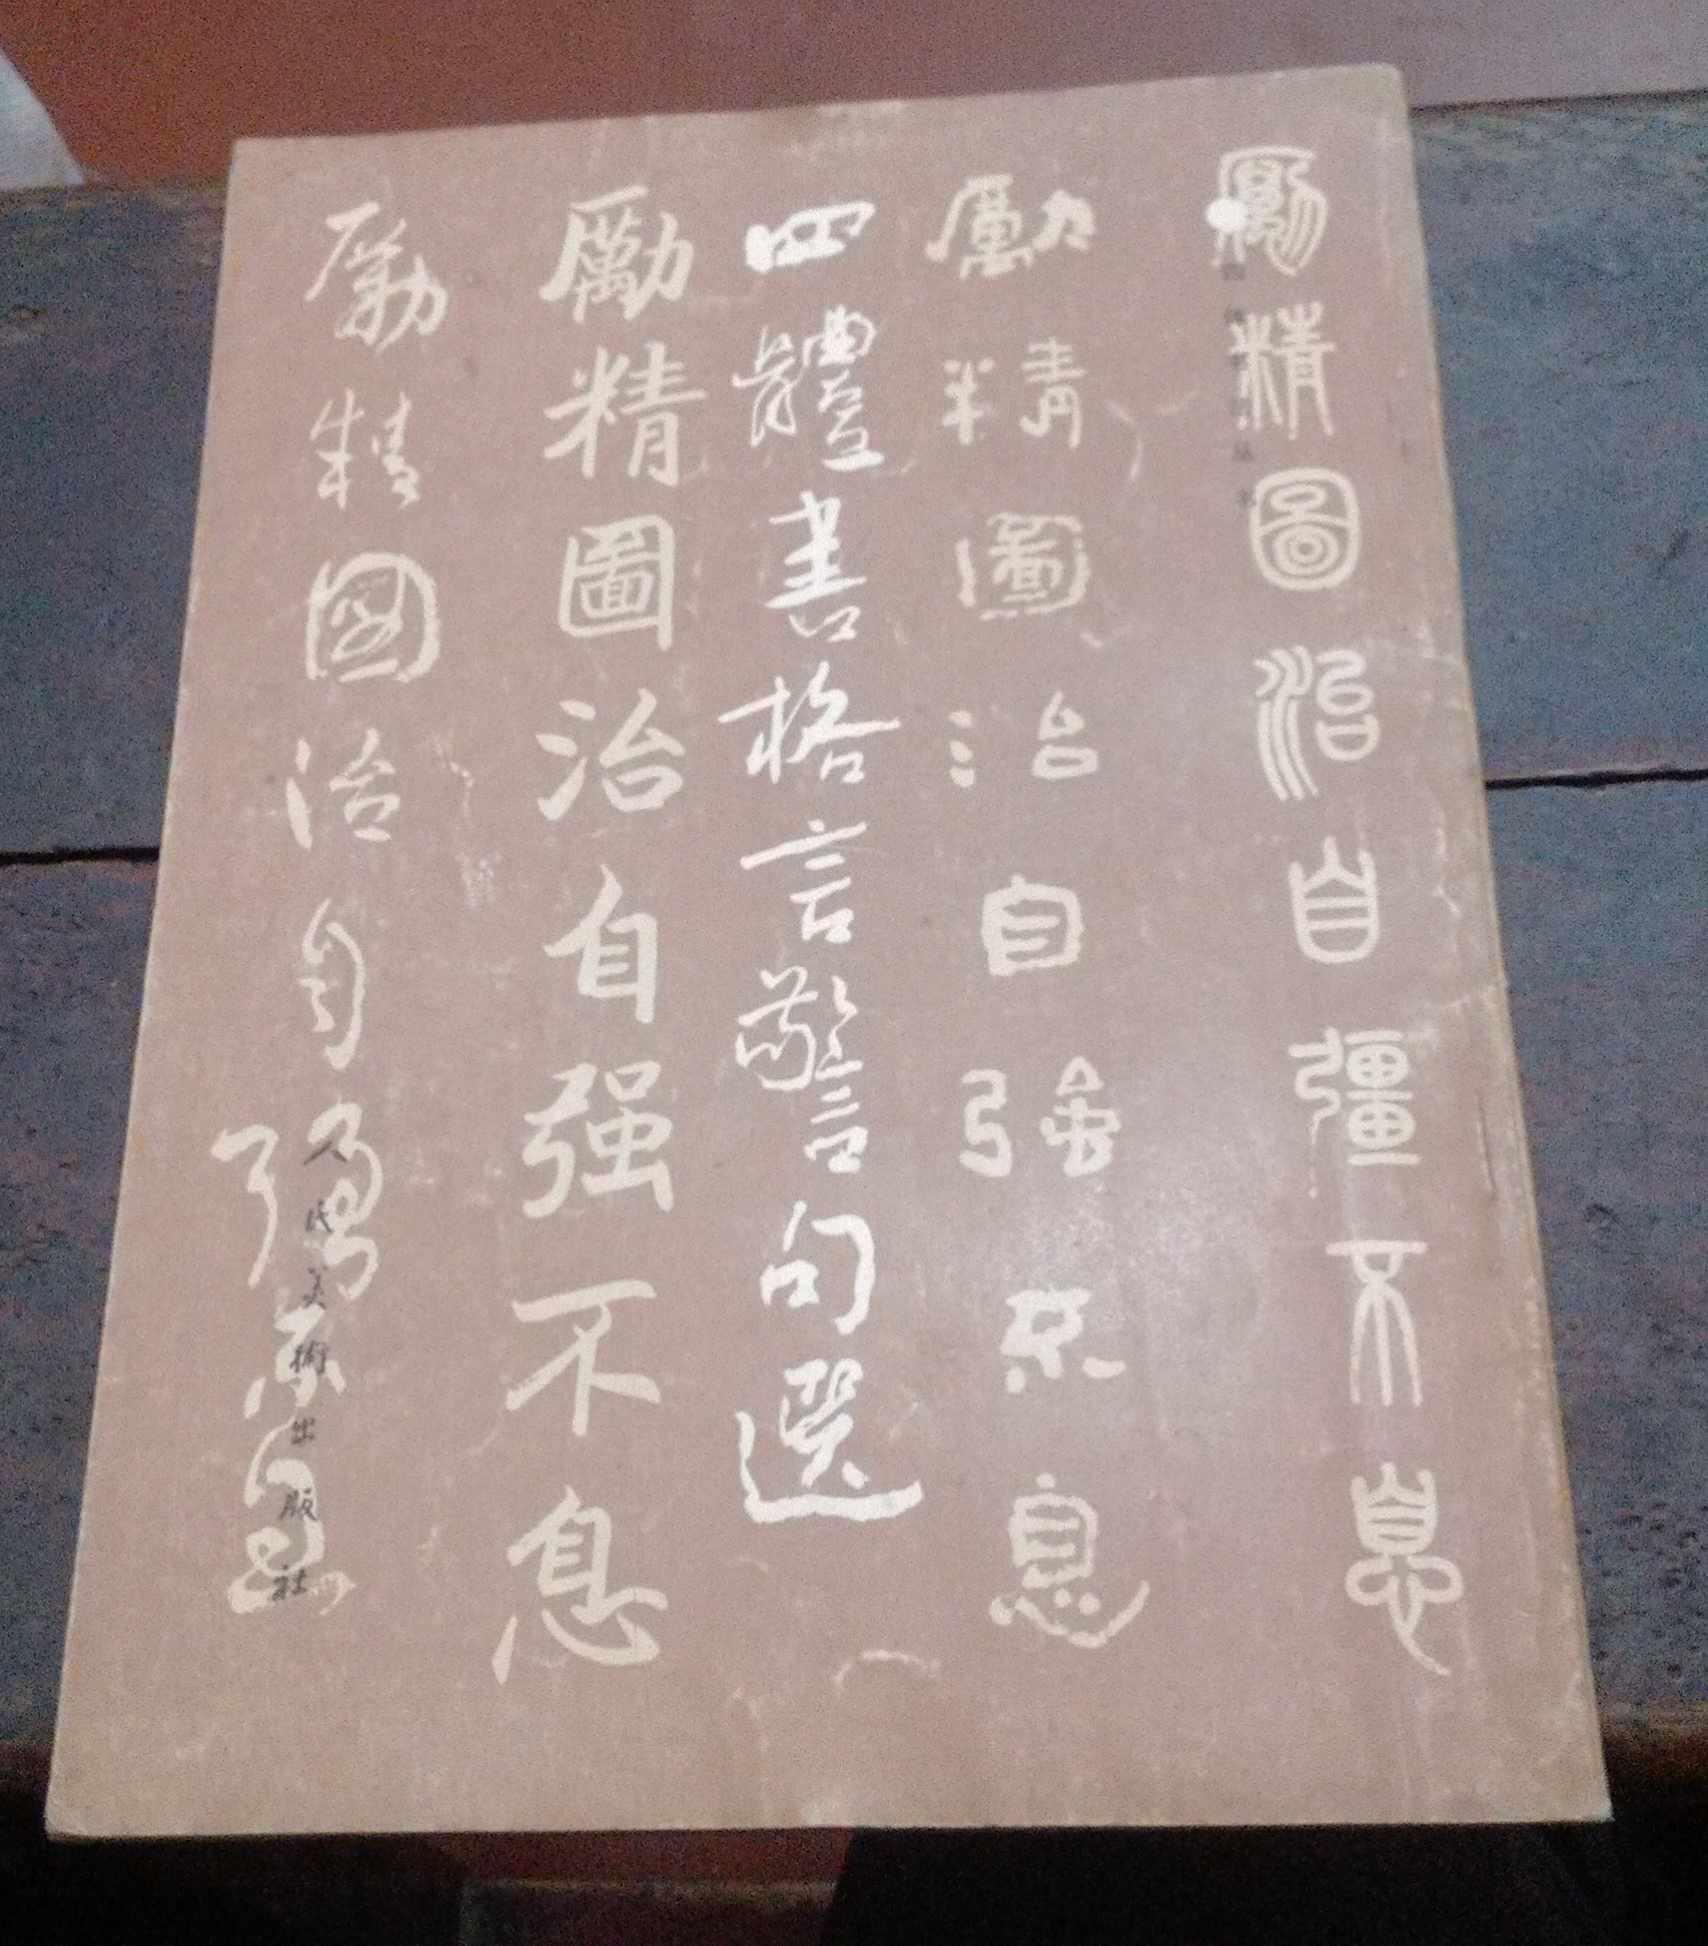 勵精圖治自彊不息
勵精圖治自強不息
四體書格言警句選
勵精圖治自强不息
勵精图治自强不息
人民美術出版社